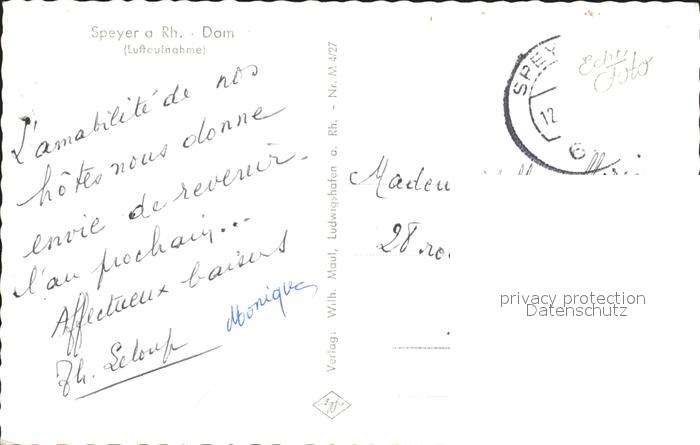 Speyer a Rh. - Dom
(Luftaufnahme)
L'amabilité de nos
hôtes nous donne
envie de revenir
l'an prochain...
Affectueux baisers
Th. Leloup
Monique
Verlag: Wilh. Maul, Ludwigshafen a. Rh. - Nr. M 4/27
SPEY
12
6
Echt
Foto
Madem
28 rou
privacy protection
Datenschutz